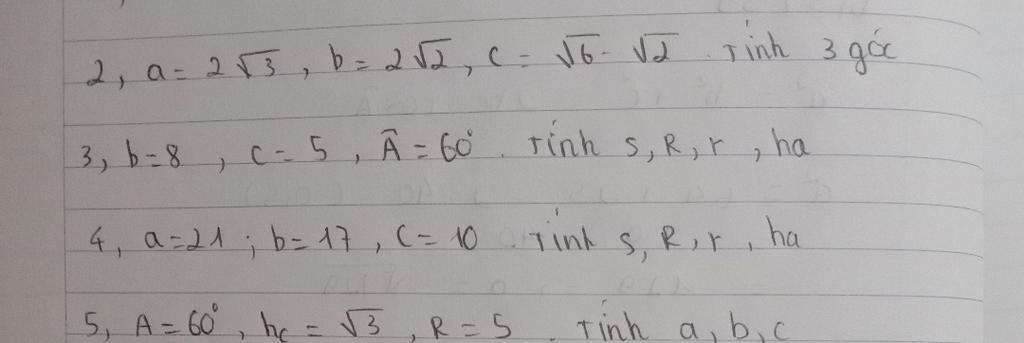 2, a = 2√3, b = 2√2, c = √6 - √2. Tính 3 góc
3, b=8, c = 5, Â = 60°. Tính S, R, r, ha
4, a=21; b=17, c=10. Tính S, R, r, ha
5, A = 60°, hc = √3, R = 5. Tính a, b, c